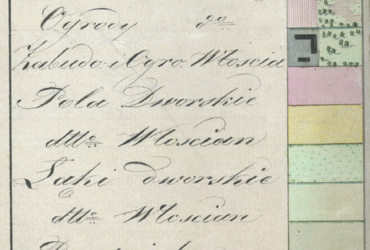 Ogrody do
Zabudo i Ogro. Włościa
Pola Dworskie
dtto Włoscian
Łąki dworskie
dtto Włoscian